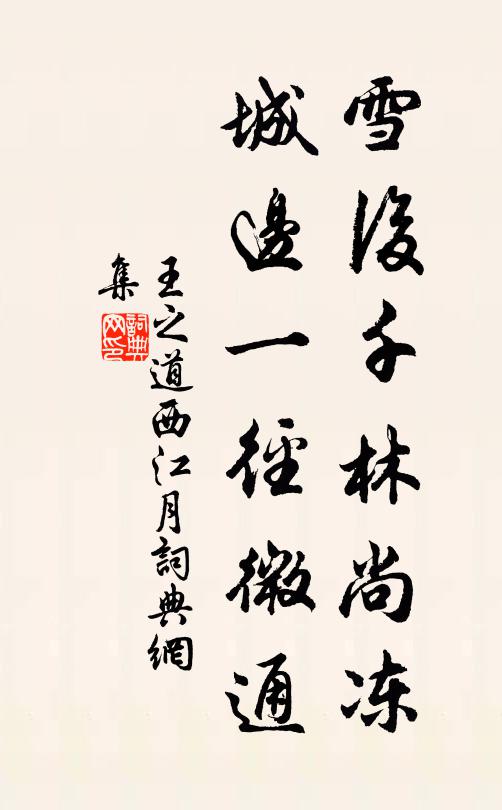 雪後千林尚冻
城邊一徑微通
王之道西江月詞典網
集
詞典
网印